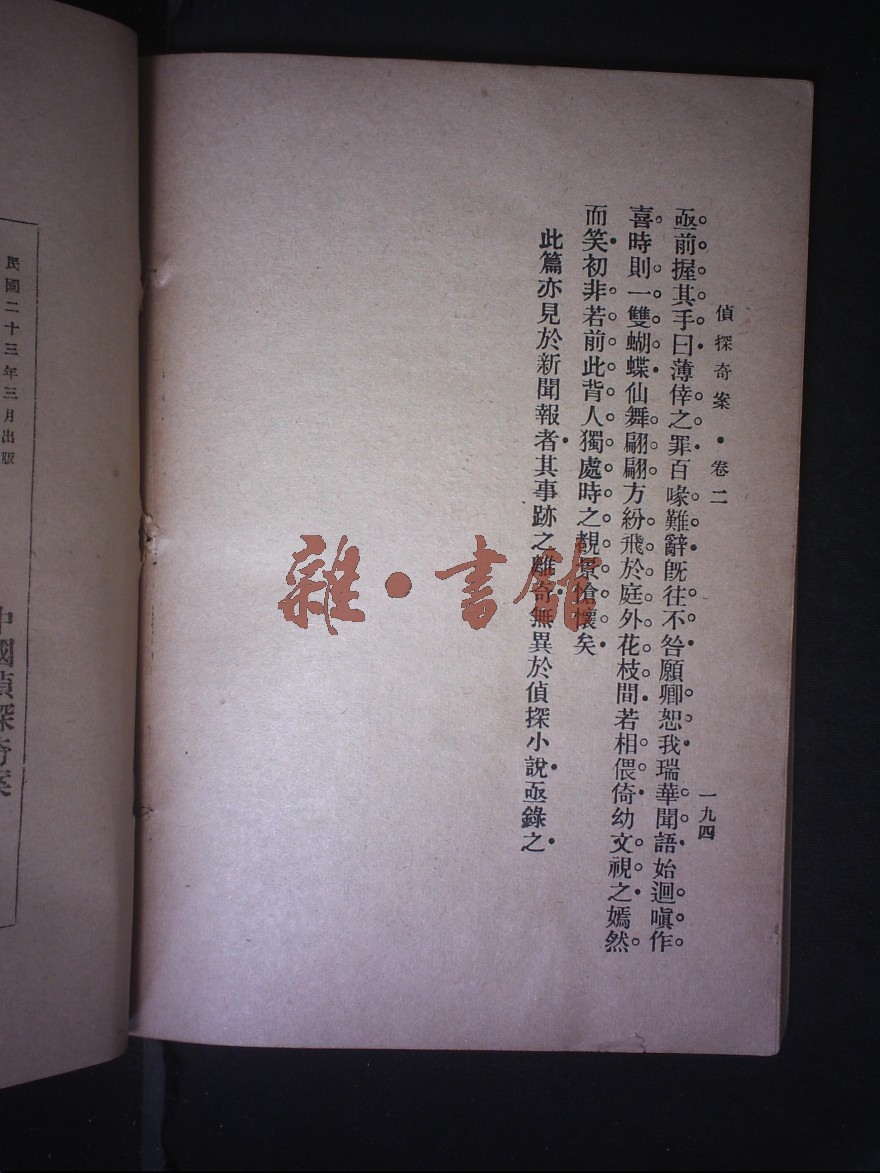 偵探奇案・卷二
一九四
亟前握其手曰薄倖之罪百喙難辭旣往不咎願卿恕我瑞華聞語始迴嗔作
喜時則一雙蝴蝶仙舞翩翩方紛飛於庭外花枝間若相偎倚幼文視之嫣然
而笑初非若前此背人獨處時之覩景愴懷矣
此篇亦見於新聞報者其事跡之離奇無異於偵探小說亟錄之
雜・書館
民國二十三年三月出版
中國偵探奇案